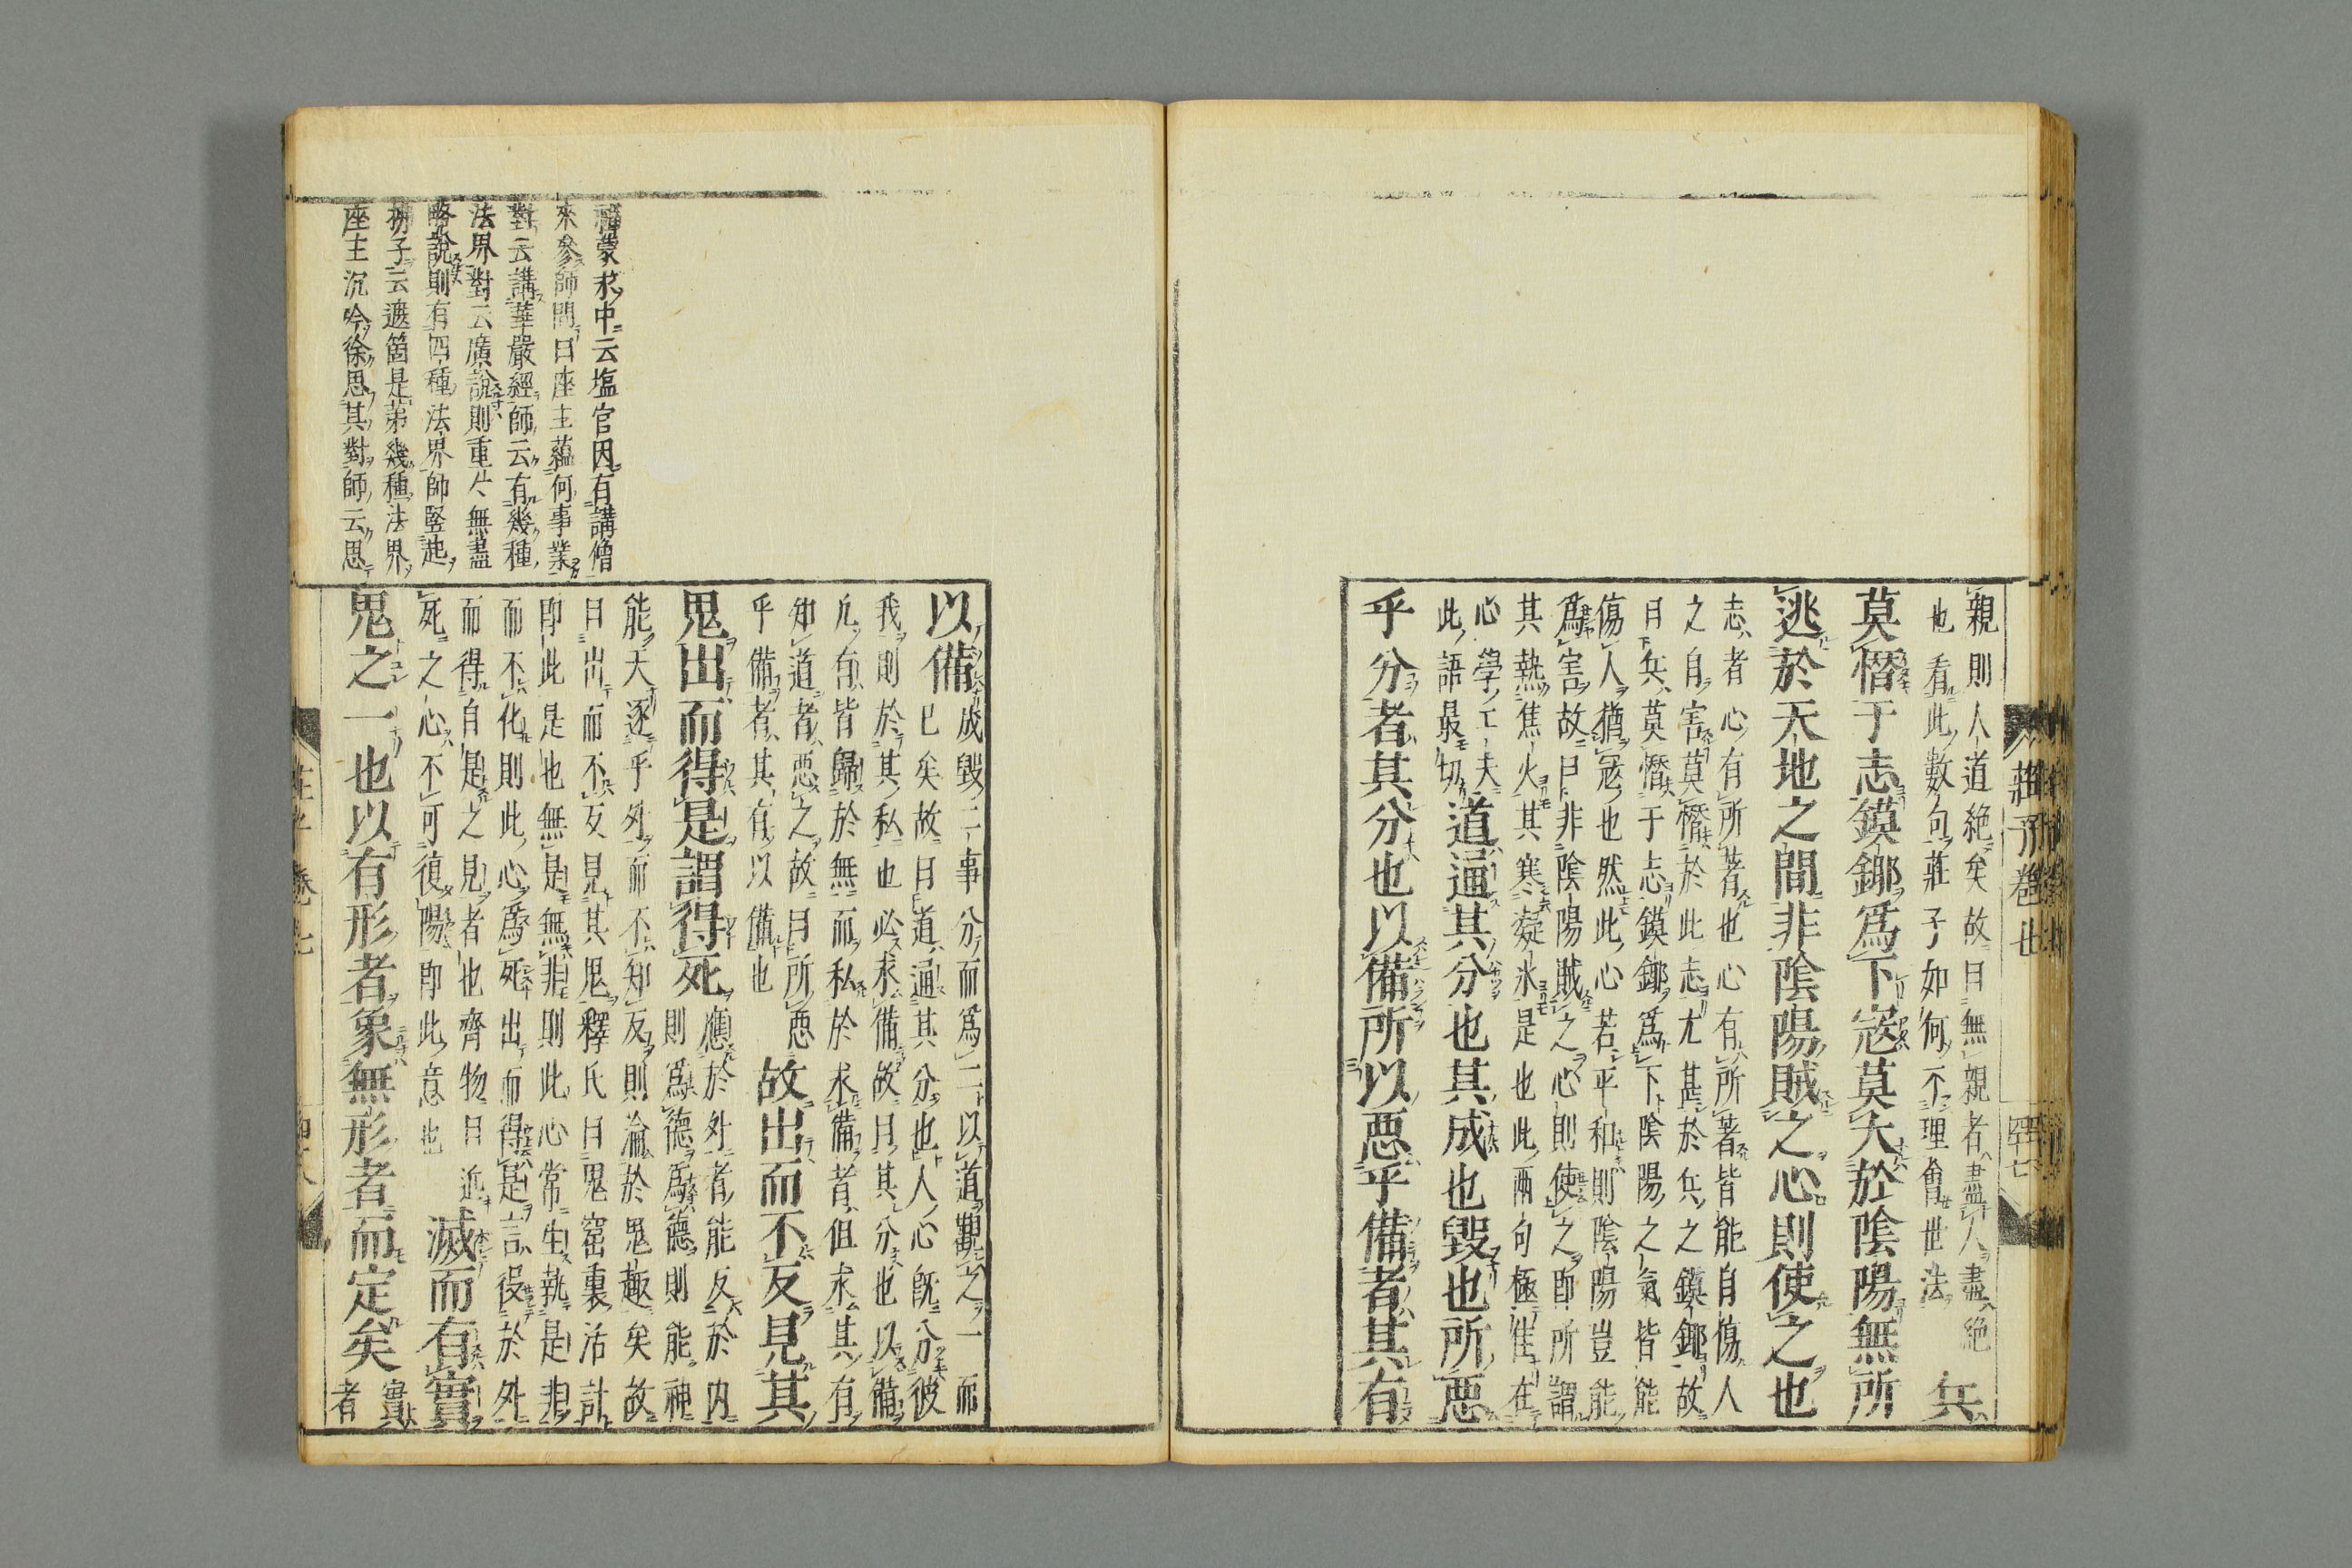 親則人道絶矣故曰無親者盡人盡絶
也看此數句莊子如何不理會世法
兵
莫憯于志鏌鋣為下寇莫大於陰陽無所
逃於天地之間非陰陽賊之心則使之也
志者心有所著也心有所著皆能自傷人
之自害莫憯於此志尤甚於兵之鏌鋣故
曰兵莫憯于志鏌鋣為下陰陽之氣皆能
傷人猶寇也然此心若平和則陰陽豈能
為害故曰非陰陽賊之心則使之即所謂
其熱焦火其寒凝氷是也此兩句極佳在
心學工夫
此語最切
道通其分也其成也毀也所惡
乎分者其分也以備所以惡乎備者其有
莊子卷七
四十七
以備
成毀二事分而為二以道觀之一而
已矣故曰道通其分也人心既分彼
我則於其私也必求備故曰其分也以備
凡有皆歸於無而私於求備者但求其有
知道者惡之故曰所惡
乎備者其有以備也
故出而不反見其
鬼出而得是謂得死
應於外者能反於内
則為德為德則能神
能天逐乎外而不知反則淪於鬼趣矣故
曰出而不反見其鬼釋氏曰鬼窟裏活計
即此是也無是無非則此心常生執是非
而不化則此心為死出而得是言役於外
而得自是之見者也齊物曰近
死之心不可復陽即此意也
滅而有實
鬼之一也以有形者象無形者而定矣
實
者
禪蒙求中云塩官因有講僧
來參師問曰座主蘊何事業
對云講華嚴經師云有幾種
法界對云廣說則重々無盡
略說則有四種法界師竪起
拂子云遮箇是第幾種法界
座主沉吟徐思其對師云思